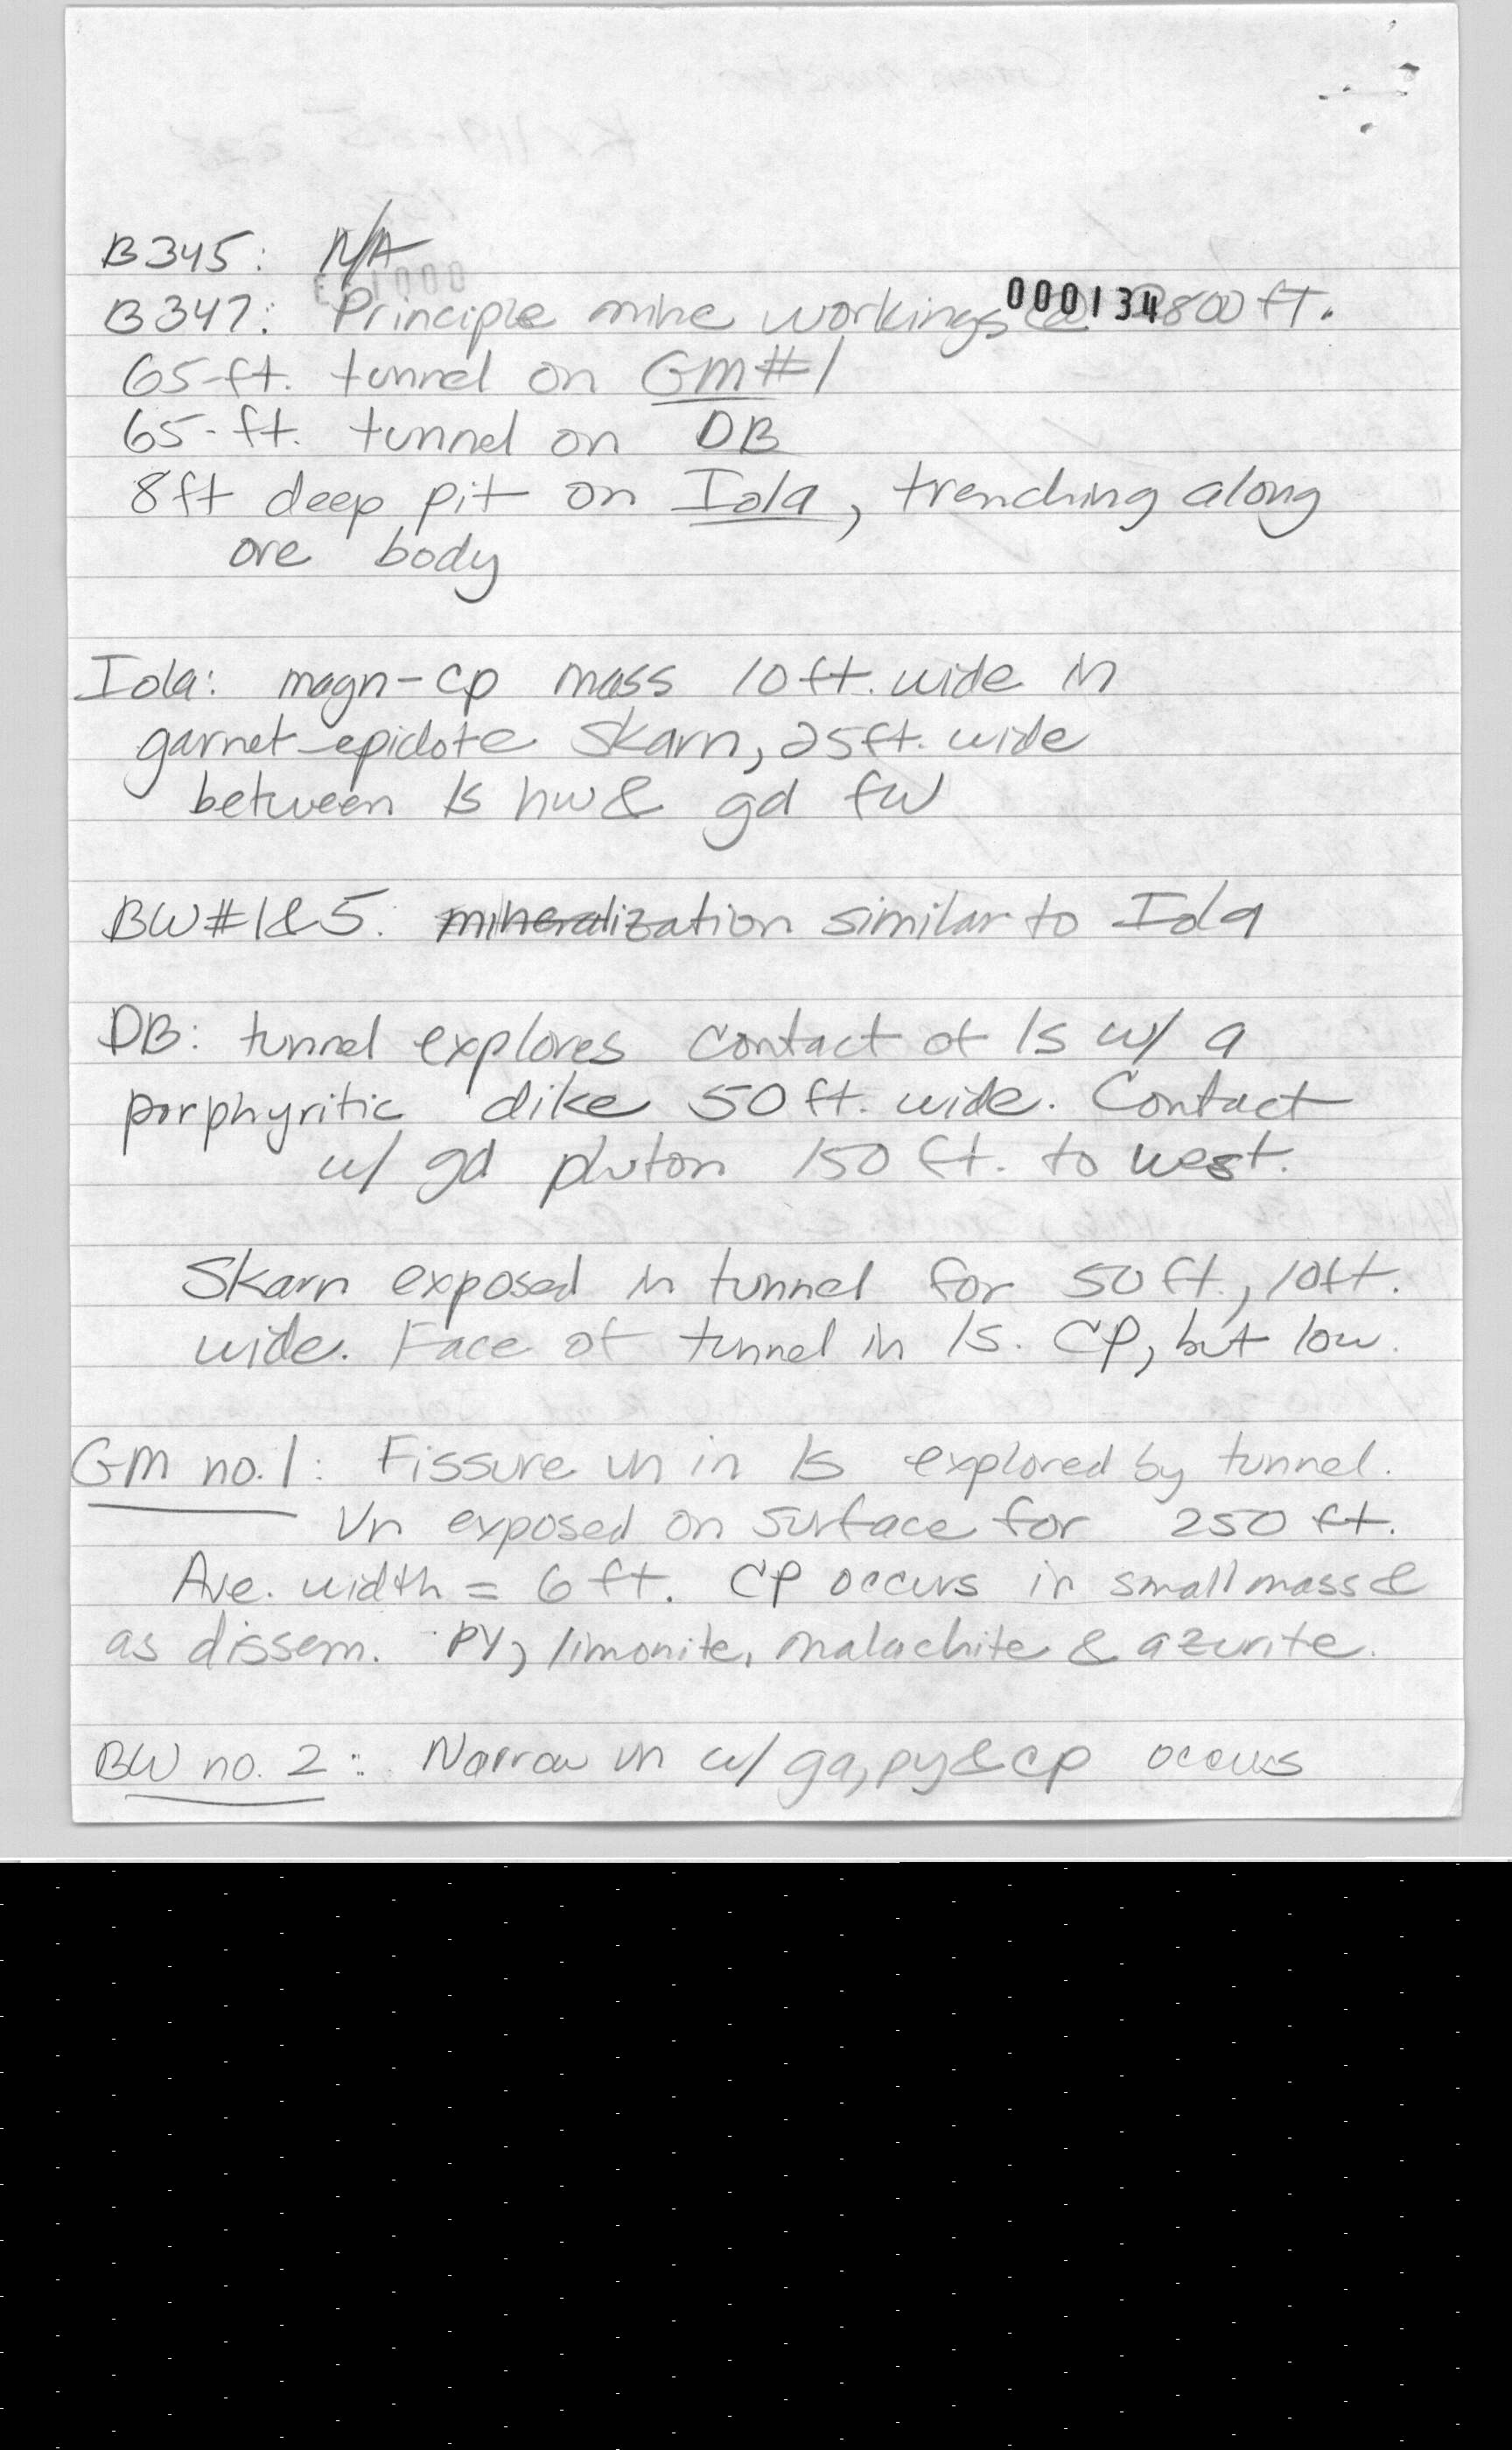 B345: N/A
000134
B347: Principle mine workings @ 800 ft.
65-ft. tunnel on GM#1
65-ft. tunnel on DB
8ft deep pit on Iola, trenching along
ore body
Iola: magn-cp mass 10ft. wide in
garnet-epidote skarn, 25ft. wide
between ls hw & gd fw
BW#1&5: mineralization similar to Iola
DB: tunnel explores contact of ls w/ a
porphyritic dike 50ft. wide. Contact
w/ gd pluton 150 ft. to west.
Skarn exposed in tunnel for 50ft., 10ft.
wide. Face of tunnel in ls. CP, but low.
GM no.1: Fissure vn in ls explored by tunnel.
Vn exposed on surface for 250 ft.
Ave. width = 6 ft. CP occurs in small mass &
as dissem. PY, limonite, malachite & azurite.
BW no. 2: Narrow vn w/ ga, py & cp occurs